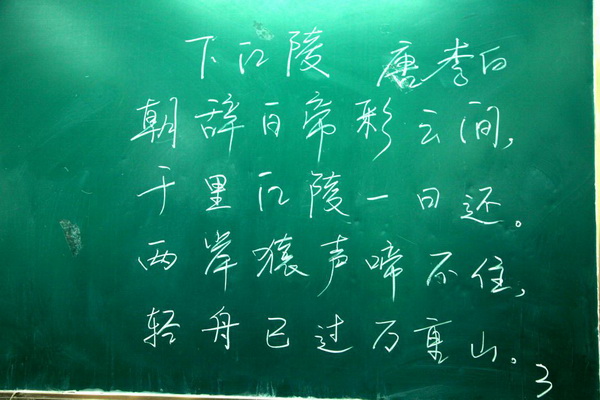 下江陵 唐李白
朝辞百帝彩云间,
千里江陵一日还。
两岸猿声啼不住,
轻舟已过万重山。
3